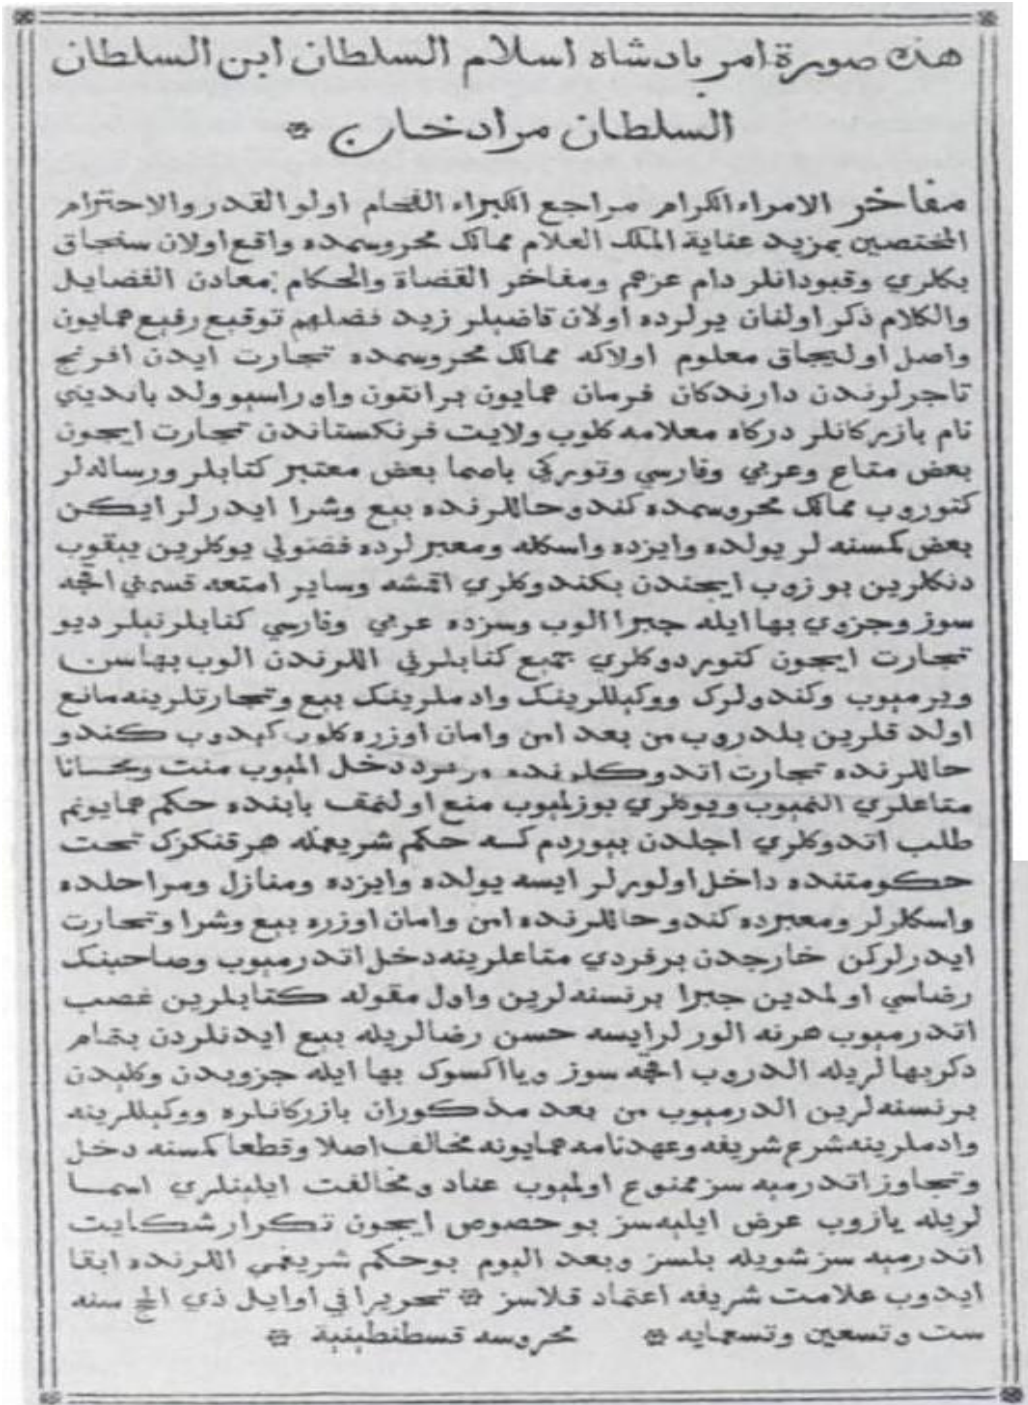 هذه صورة امر پادشاه اسلام السلطان ابن السلطان
السلطان مراد خان
مفاخر الامراء الكرام مراجع الكبراء الفخام اولو القدر والاحترام
المختصين بمزيد عناية الملك العلام ممالك محروسمده واقع اولان سنجاق
بكلري وقبودانلر دام عزهم ومفاخر القضاة والحكام معادن الفضايل
والكلام ذكر اولنان يرلرده اولان قاضيلر زيد فضلهم توقيع رفيع همايون
واصل اوليجاق معلوم اولاكه ممالك محروسمده تجارت ايدن افرنج
تاجرلرندن دارندكان فرمان همايون برانتون واوراسيو ولد بانديني
نام بازركانلر دركاه معلامه كلوب ولايت فرنكستاندن تجارت ايجون
بعض متاع وعربي وفارسي وتوركي باصما بعض معتبر كتابلر ورساله لر
كتوروب ممالك محروسمده كندو حاللرنده بيع وشرا ايدرلر ايكن
بعض كمسنه لر يولده وايزده واسكله ومعبرلرده فضولي يوكلرين ييقوب
دنكلرين بوزوب ايجندن بكندوكلري اقمشه وساير امتعه قسمني اقچه
سوز وجزوي بها ايله جبرا الوب وسزده عربي وفارسي كتابلر نيلر ديو
تجارت ايجون كتوردوكلري جميع كتابلرني اللرندن الوب بهاسن
ويرميوب وكندولرك ووكيللرينك وادملرينك بيع وتجارتلرينه مانع
اولدقلرين بلدروب من بعد امن وامان اوزره كلوب كيدوب كندو
حاللرنده تجارت اتدوكلرنده دخل المیوب منت ومجسانا
متاعلري النميوب ويوكلري بوزلميوب منع اولنمق بابنده حكم همايونم
طلب اتدوكلري اجلدن بيوردم كه حكم شريفمله هر قنكزك تحت
حكومتنده داخل اولورلر ايسه يولده وايزده ومنازل ومراحلده
واسكلرلر ومعبرده كندو حاللرنده امن وامان اوزره بيع وشرا وتجارت
ايدرلركن خارجدن بر فردي متاعلرينه دخل اتدرميوب وصاحبنك
رضاسي اولمدين جبرا برنسنه لرين واول مقوله كتابلرين غصب
اتدرميوب هرنه الورلر ايسه حسن رضالريله بيع ايدنلردن بتمام
دكربهالريله الدروب اقچه سوز ويا اكسوك بها ايله جزويدن وكليدن
برنسنه لرين الدرميوب من بعد مذكوران بازركانلره ووكيللرينه
وادملرينه شرع شريفه وعهدنامه همايونه مخالف اصلا وقطعا كمسنه دخل
وتجاوز اتدرميه سز ممنوع اولميوب عناد ومخالفت ايلينلري اسما
لريله يازوب عرض ايليه سز بو خصوص ايجون تكرار شكايت
اتدرميه سز شويله بلسز وبعد اليوم بو حكم شريفمي اللرنده ابقا
ايدوب علامت شريفه اعتماد قلاسز تحريرا في اوايل ذي الحج سنه
ست وتسعين وتسعمايه محروسه قسطنطينية